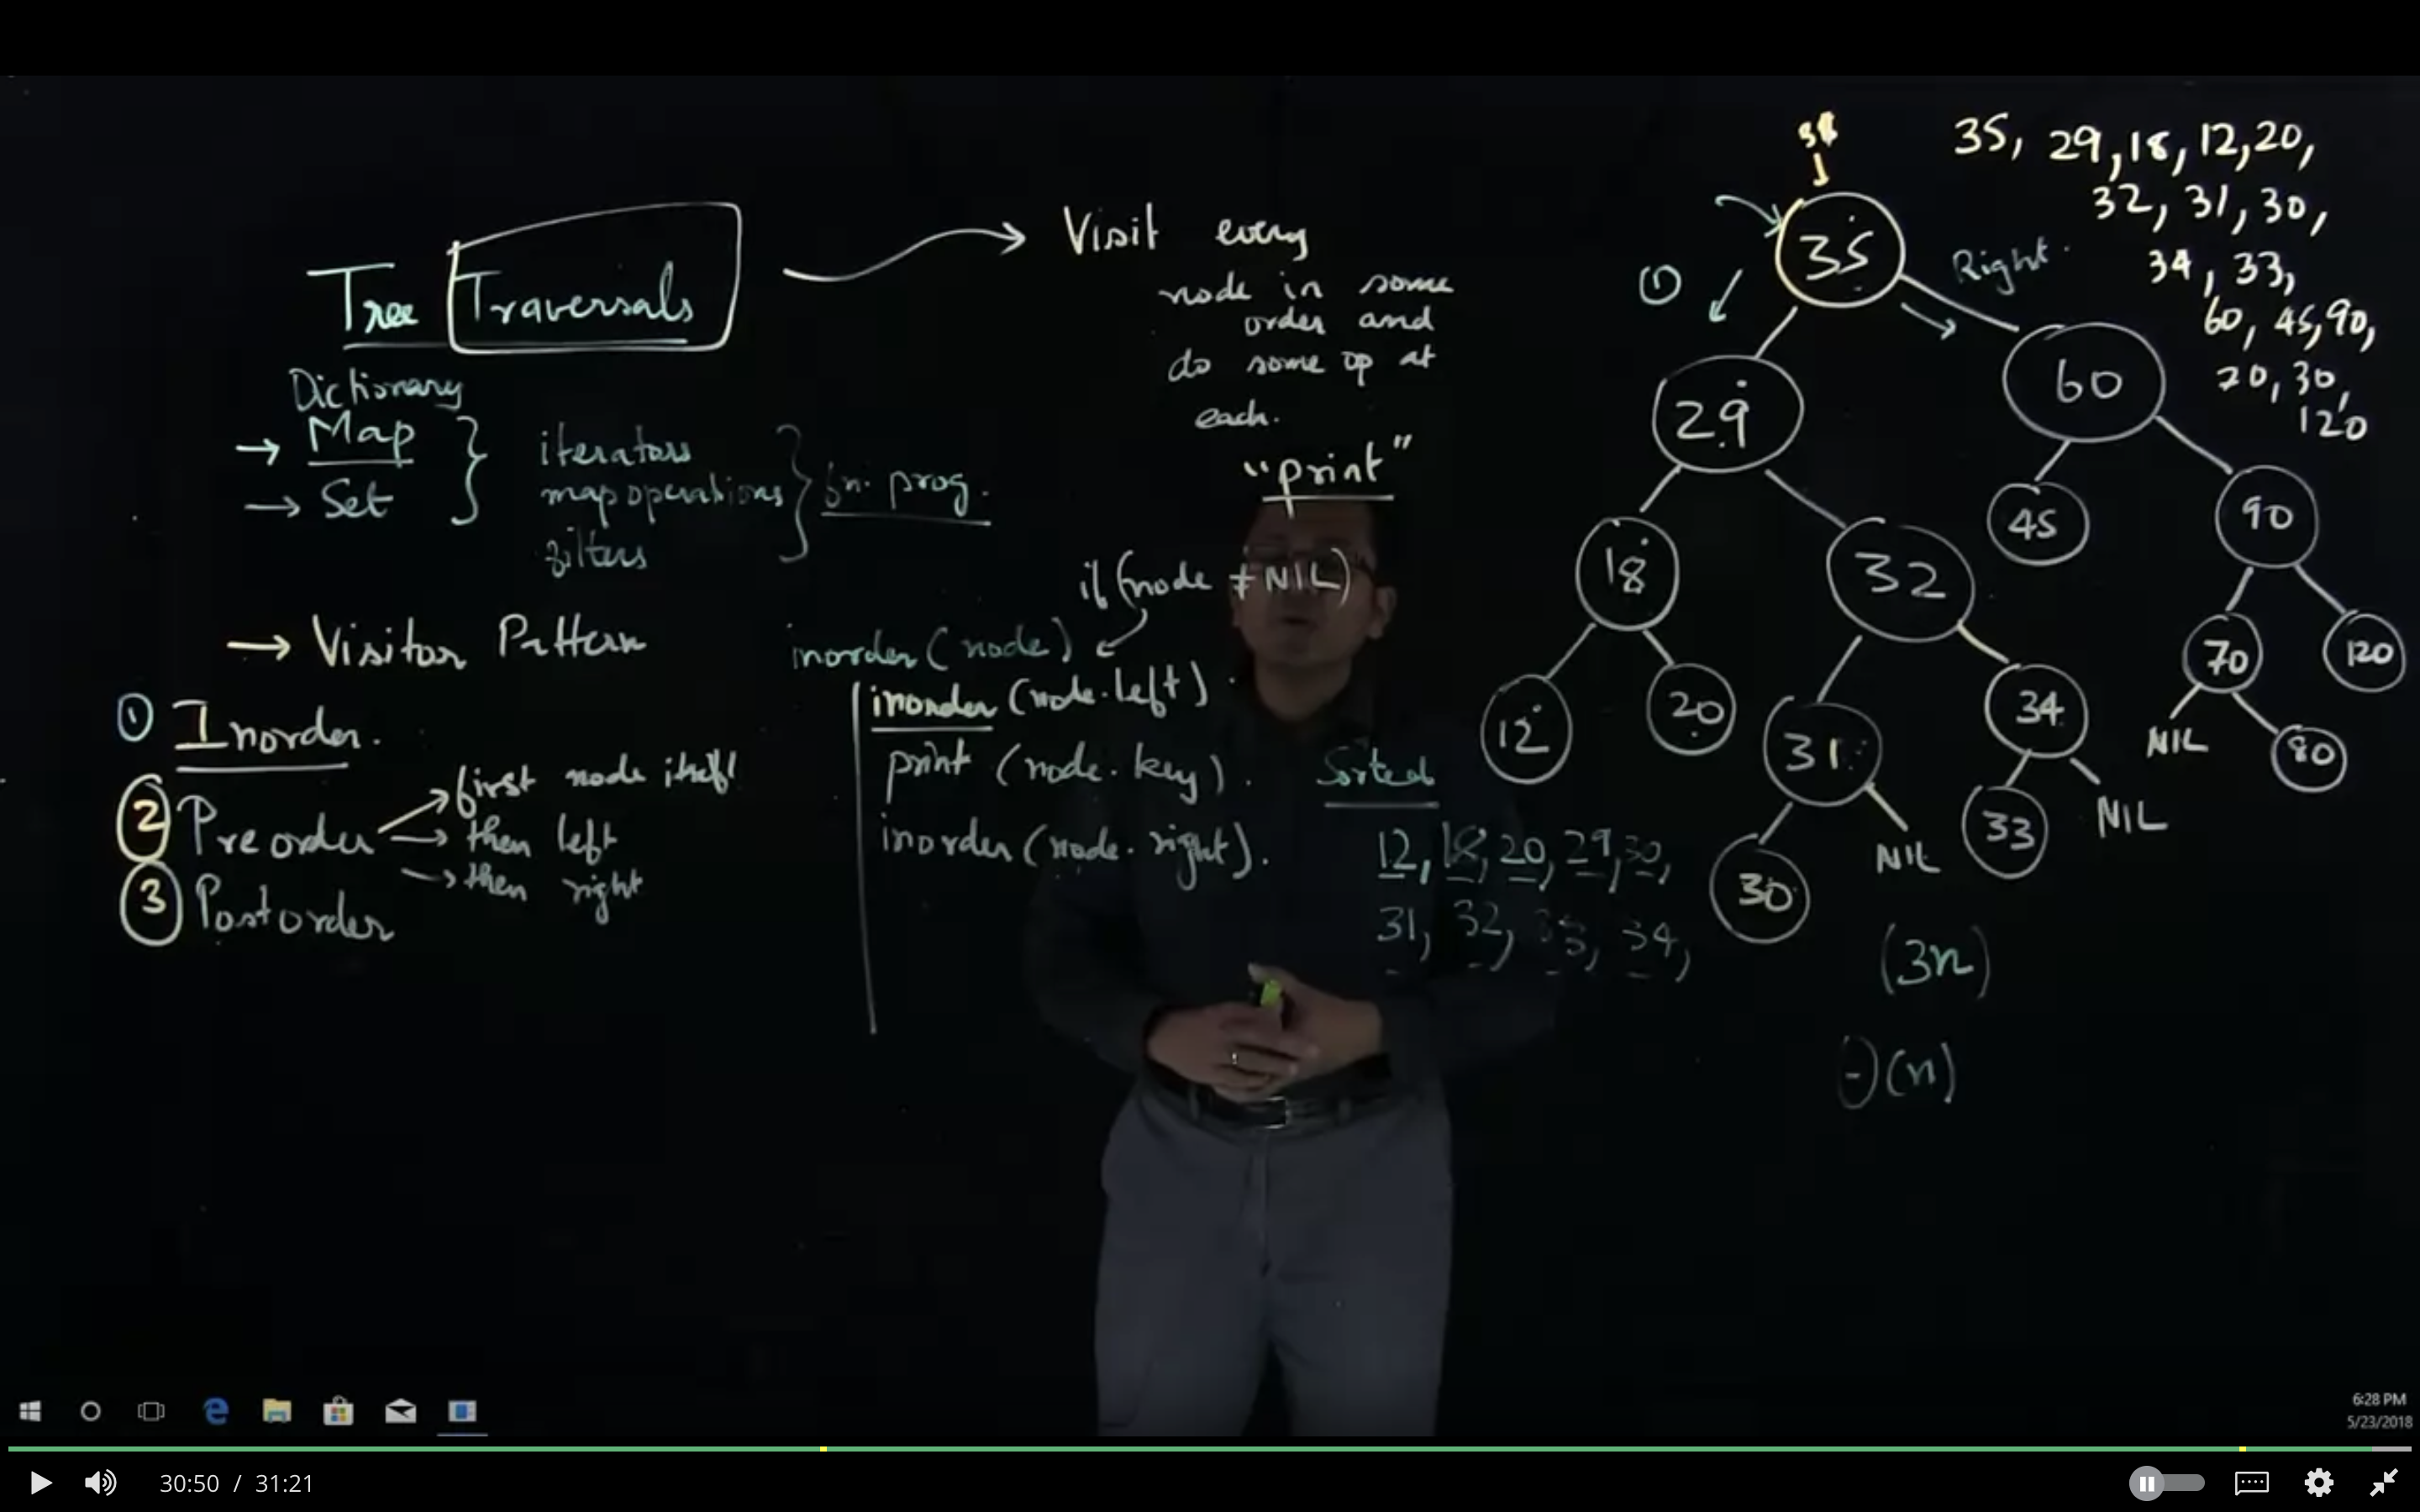 Tree Traversals
Visit every
node in some
order and
do some op at
each.
"print"
Dictionary
→ Map
→ Set
iterators
map operations
filters
fn. prog.
→ Visitor Pattern
① Inorder.
② Preorder
→ first node itself
→ then left
→ then right
③ Postorder
if (node ≠ NIL)
inorder (node)
inorder (node.left).
print (node.key).
inorder (node.right).
Sorted
12, 18, 20, 29, 30,
31, 32, 33, 34,
35, 29, 18, 12, 20,
32, 31, 30,
34, 33,
60, 45, 90,
70, 30,
120
①
Right.
35
29
60
18
32
45
90
12
20
31
34
70
120
30
NIL
33
NIL
NIL
80
(3n)
Θ(n)
6:28 PM
5/23/2018
30:50 / 31:21